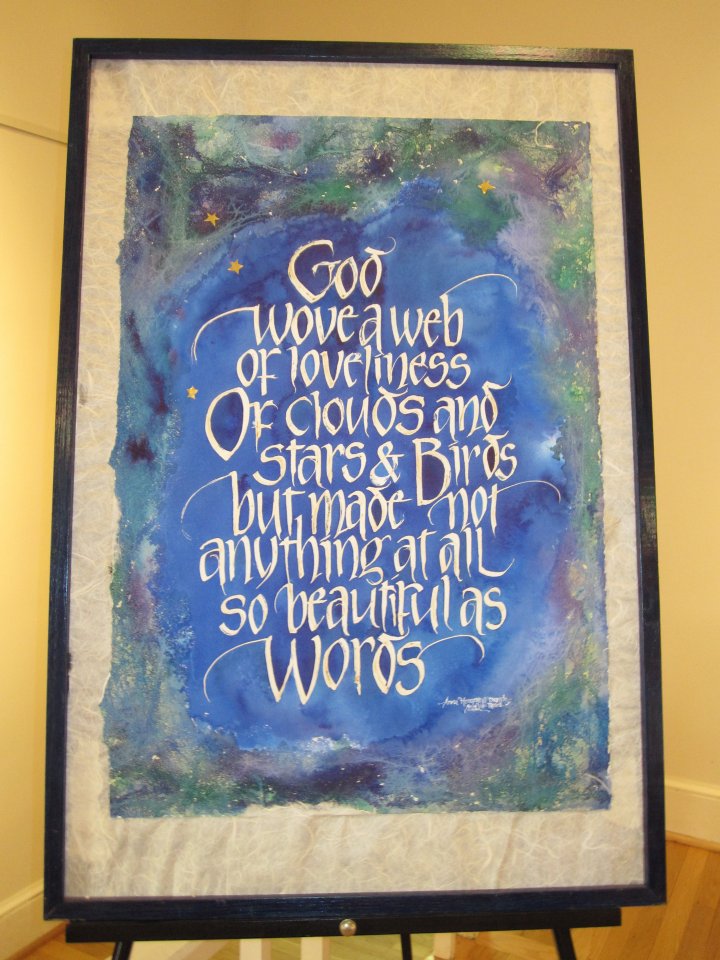 God
wove a web
of loveliness
Of clouds and
stars & Birds
but made not
anything at all
so beautiful as
Words
Anna